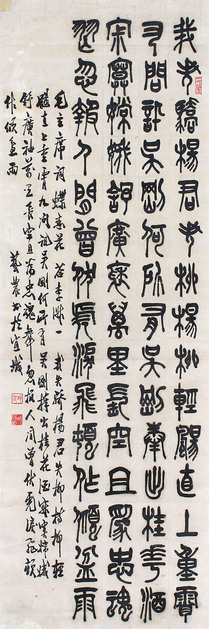 我失驕楊君失柳楊柳輕颺直上重霄
九問訊吳剛何所有吳剛捧出桂花酒
寂寞嫦娥舒廣袖萬里長空且為忠魂
舞忽報人間曾伏虎淚飛頓作傾盆雨
毛主席詞蝶戀花答李淑一 我失驕楊君失柳楊柳輕
颺直上重霄九問訊吳剛何所有吳剛捧出桂花酒寂寞嫦娥
舒廣袖萬里長空且為忠魂舞忽報人間曾伏虎淚飛頓
作傾盆雨